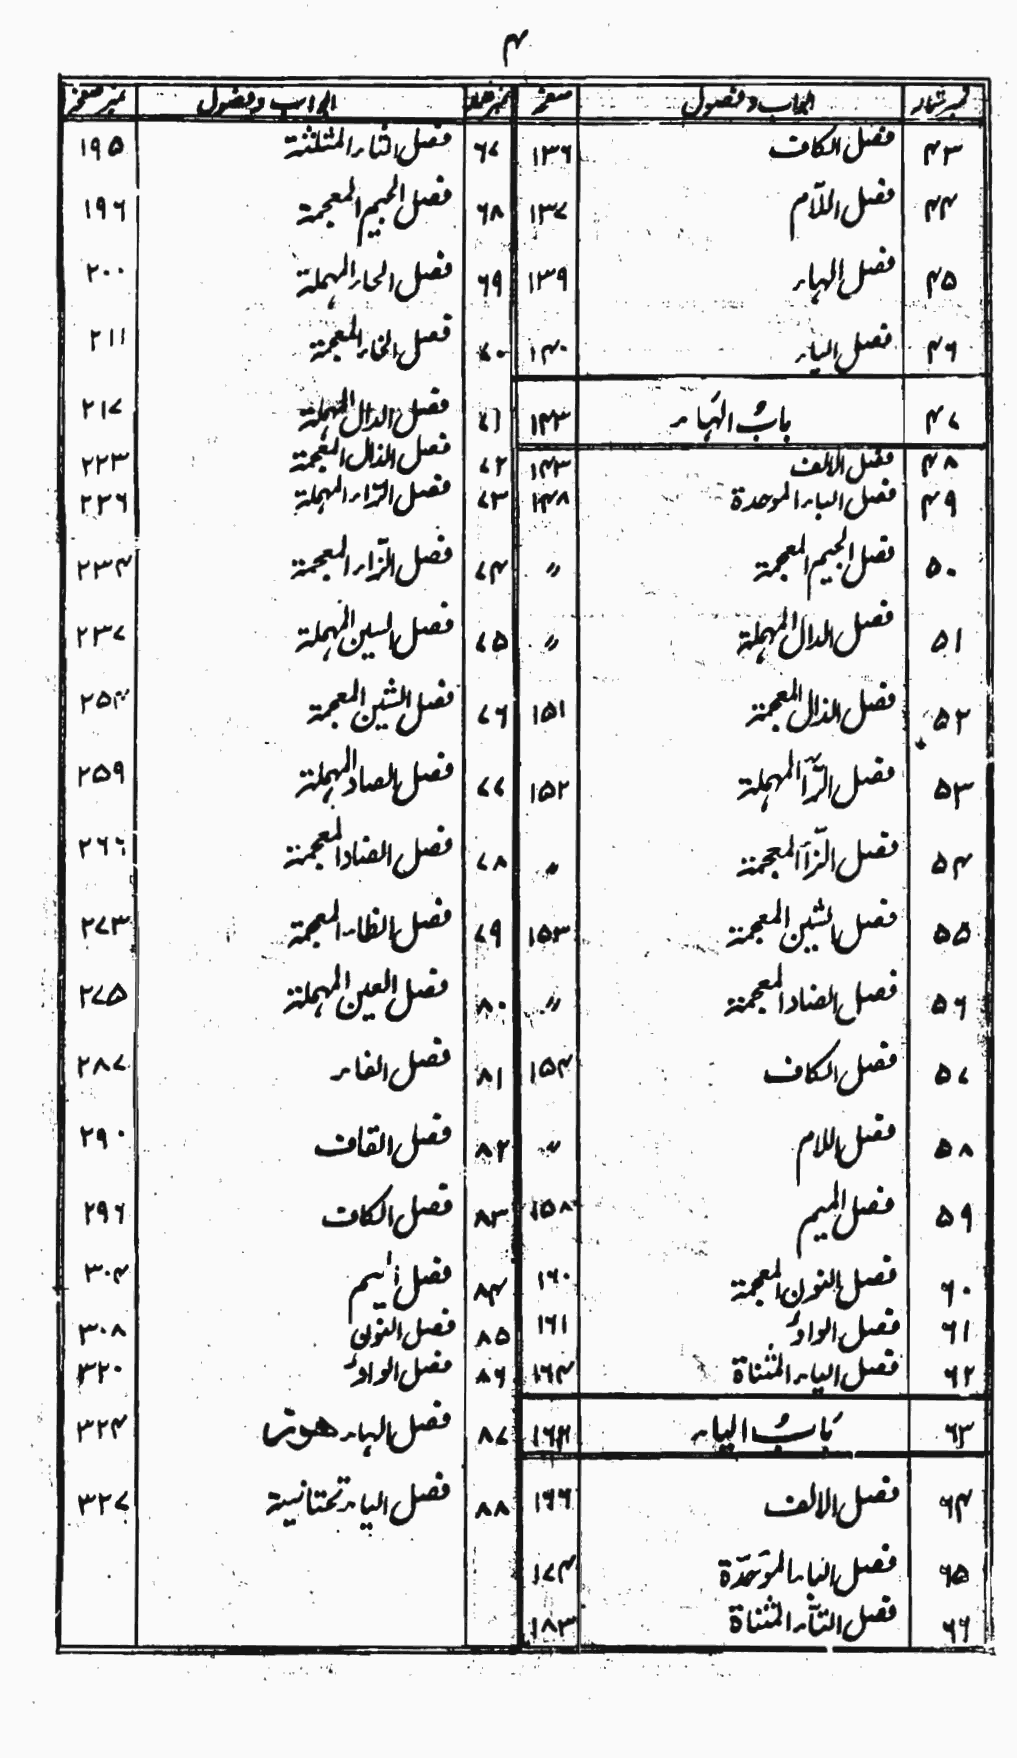 ۴
نمبر شمار ابواب و فصول صفحہ
۴۳ فصل الکاف ۱۳۶
۴۴ فصل اللّام ۱۳۷
۴۵ فصل الہاء ۱۳۹
۴۶ فصل الیاء ۱۴۰
۴۷ بابُ الہَاء ۱۴۳
۴۸ فصل الالف ۱۴۳
۴۹ فصل الباء الموحدة ۱۴۸
۵۰ فصل الجیم المعجمة 〃
۵۱ فصل الدال المہملة 〃
۵۲ فصل الذال المعجمة ۱۵۱
۵۳ فصل الرّآ المہملة ۱۵۲
۵۴ فصل الزّآ المعجمة 〃
۵۵ فصل الشین المعجمة ۱۵۳
۵۶ فصل الضاد المعجمة 〃
۵۷ فصل الکاف ۱۵۴
۵۸ فصل اللام 〃
۵۹ فصل المیم ۱۵۸
۶۰ فصل النون المعجمة ۱۶۰
۶۱ فصل الواوٴ ۱۶۱
۶۲ فصل الیاء المثناة ۱۶۴
۶۳ بَابُ الیاء
۶۴ فصل الالف ۱۶۶
۶۵ فصل الباء الموَحّدة ۱۷۴
۶۶ فصل التآء المثناة ۱۸۳
ابواب و فصول نمبر صفحہ
۶۷ فصل الثاء المثلثة ۱۹۵
۶۸ فصل الجیم المعجمة ۱۹۶
۶۹ فصل الحاء المہملة ۲۰۰
۷۰ فصل الخاء المعجمة ۲۱۱
۷۱ فصل الدال المہملة ۲۱۷
۷۲ فصل الذال المعجمة ۲۲۳
۷۳ فصل الرّاء المہملة ۲۲۶
۷۴ فصل الزّاء المعجمة ۲۳۴
۷۵ فصل السین المہملة ۲۳۷
۷۶ فصل الشین المعجمة ۲۵۴
۷۷ فصل الصاد المہملة ۲۵۹
۷۸ فصل الضاد المعجمة ۲۶۶
۷۹ فصل الظاء المعجمة ۲۷۳
۸۰ فصل العین المہملة ۲۷۵
۸۱ فصل الفاء ۲۸۷
۸۲ فصل القاف ۲۹۰
۸۳ فصل الکاف ۲۹۶
۸۴ فصل المیم ۳۰۴
۸۵ فصل النون ۳۰۸
۸۶ فصل الواوٴ ۳۲۰
۸۷ فصل الہاء ھوز ۳۲۴
۸۸ فصل الیاء تحتانیة ۳۲۷